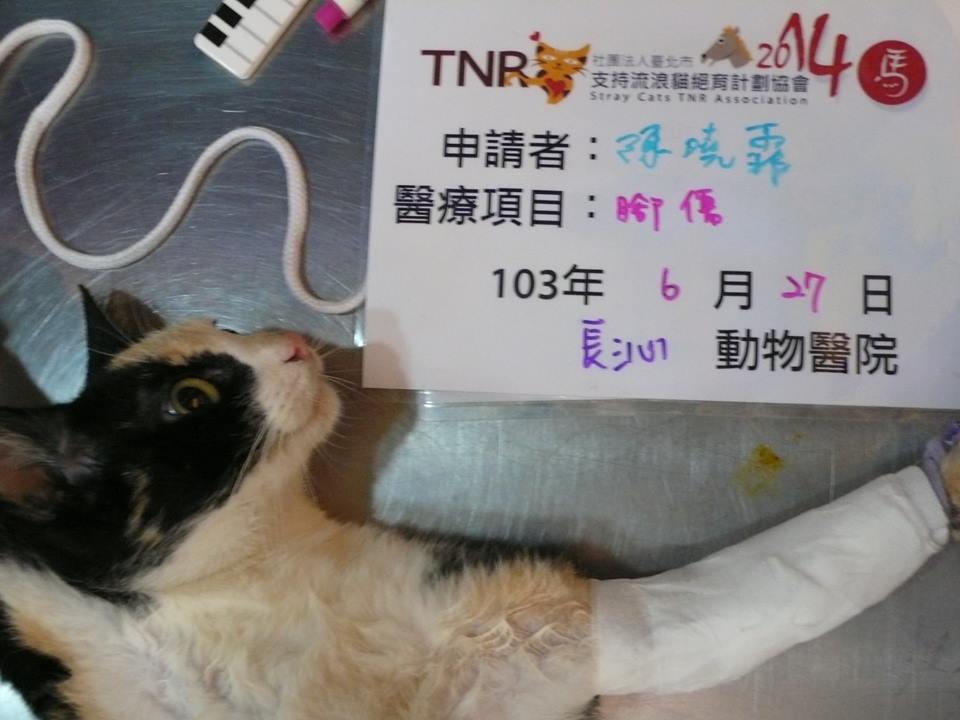 TNR 社團法人臺北市 2014 馬
支持流浪貓絕育計劃協會
Stray Cats TNR Association
申請者：曉
醫療項目：腳傷
103年 6 月 27 日
長沁 動物醫院